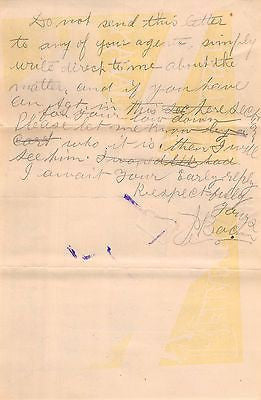 Do not send this letter
to any of your agents, simply
write direct to me about the
matter, and if you have
an Agt. in this sec here sec
for your low down
Please let me know by
card who it is, then I will
see him. I would had
I await your Early reply
Respectfully
Yours